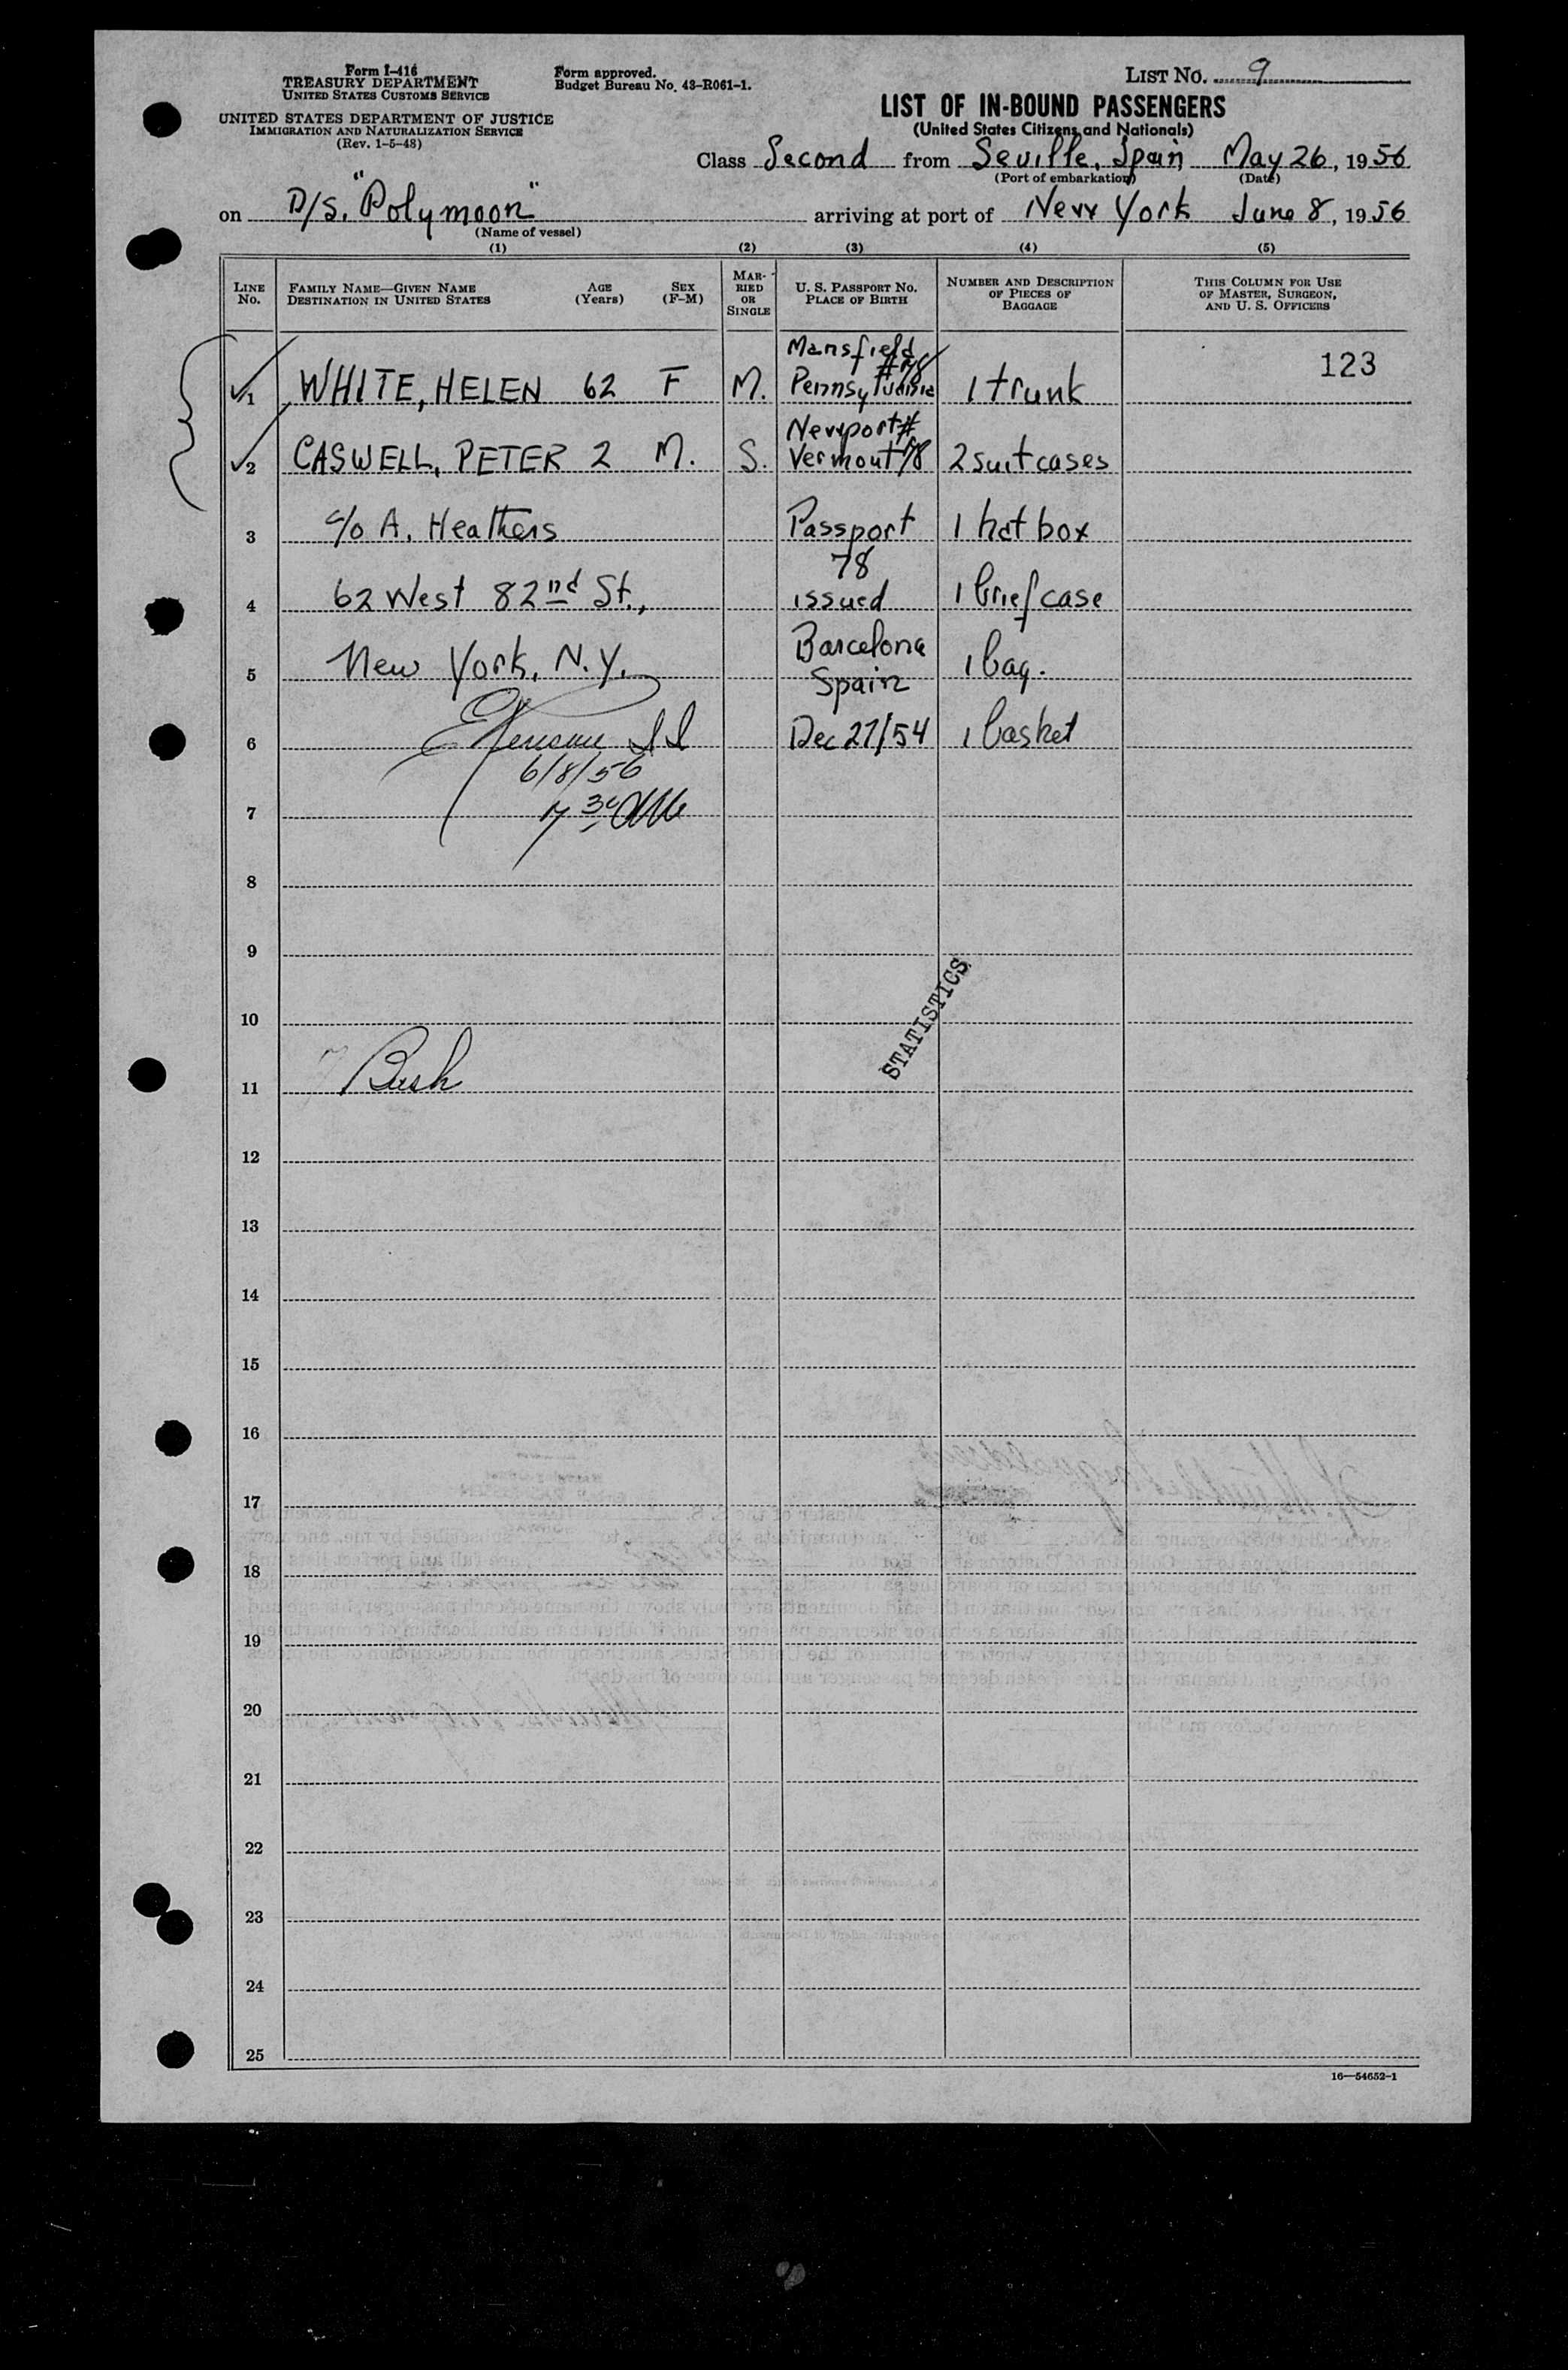 Form I-416
TREASURY DEPARTMENT
UNITED STATES CUSTOMS SERVICE
UNITED STATES DEPARTMENT OF JUSTICE
IMMIGRATION AND NATURALIZATION SERVICE
(Rev. 1-5-48)
Form approved.
Budget Bureau No. 43-R061-1.
LIST No. 9
LIST OF IN-BOUND PASSENGERS
(United States Citizens and Nationals)
Class Second from Seville, Spain May 26, 1956
(Port of embarkation) (Date)
on D/S. "Polymoon" arriving at port of New York June 8, 1956
(Name of vessel)
(1) (2) (3) (4) (5)
LINE No.
FAMILY NAME—GIVEN NAME
DESTINATION IN UNITED STATES
AGE (Years)
SEX (F-M)
MAR-
RIED
OR
SINGLE
U. S. PASSPORT NO.
PLACE OF BIRTH
NUMBER AND DESCRIPTION
OF PIECES OF
BAGGAGE
THIS COLUMN FOR USE
OF MASTER, SURGEON,
AND U. S. OFFICERS
Mansfield #78 123
1 WHITE, HELEN 62 F M. Pennsylvania 1 trunk
Newport #
2 CASWELL, PETER 2 M. S. Vermont 78 2 suitcases
3 c/o A. Heathers Passport 1 hat box
78
4 62 West 82nd St., issued 1 brief case
Barcelona
5 New York, N.Y. Spain 1 bag.
6 Dec 27/54 1 basket
6/8/56
7
8
9
STATISTICS
10
11 Bush
12
13
14
15
16
17
18
19
20
21
22
23
24
25
16—54652-1